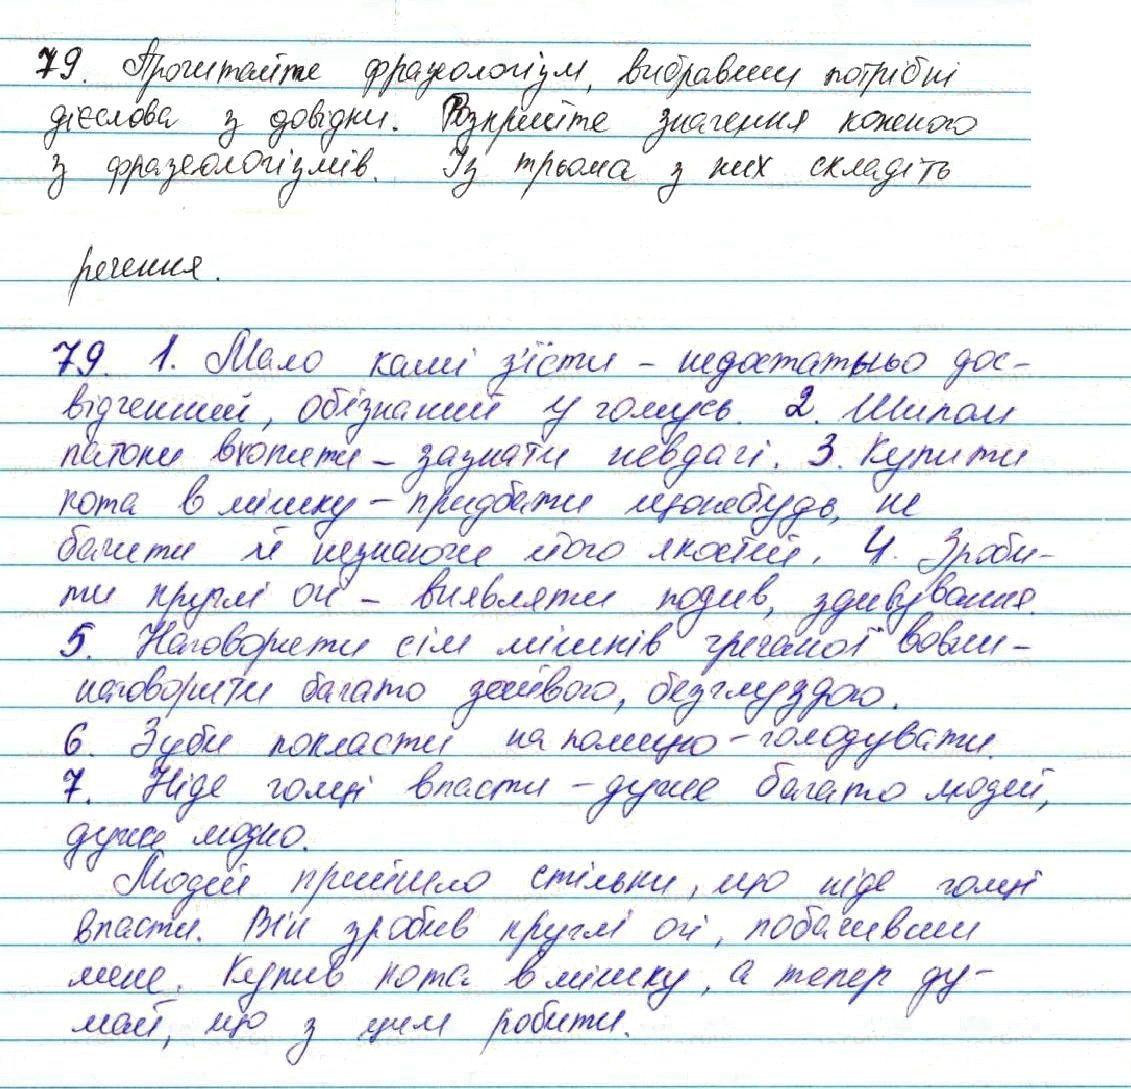 79. Прочитайте фразеологізм, вибравши потрібні
дієслова з довідки. Розкрийте значення кожного
з фразеологізмів. Із трьома з них складіть
речення.
79. 1. Мало каші з'їсти – недостатньо дос-
відчений, обізнаний у чомусь. 2. Шилом
патоки вхопити – зазнати невдачі. 3. Купити
кота в мішку – придбати щонебудь, не
бачити й незнаючи його якостей. 4. Зроби-
ти круглі очі – виявляти подив, здивування.
5. Наговорити сім мішків гречаної вовни –
наговорити багато зайвого, безглуздого.
6. Зуби покласти на полицю – голодувати.
7. Ніде голці впасти – дуже багато людей,
дуже людно.
Людей прийшло стільки, що ніде голці
впасти. Він зробив круглі очі, побачивши
мене. Купив кота в мішку, а тепер ду-
май, що з цим робити.